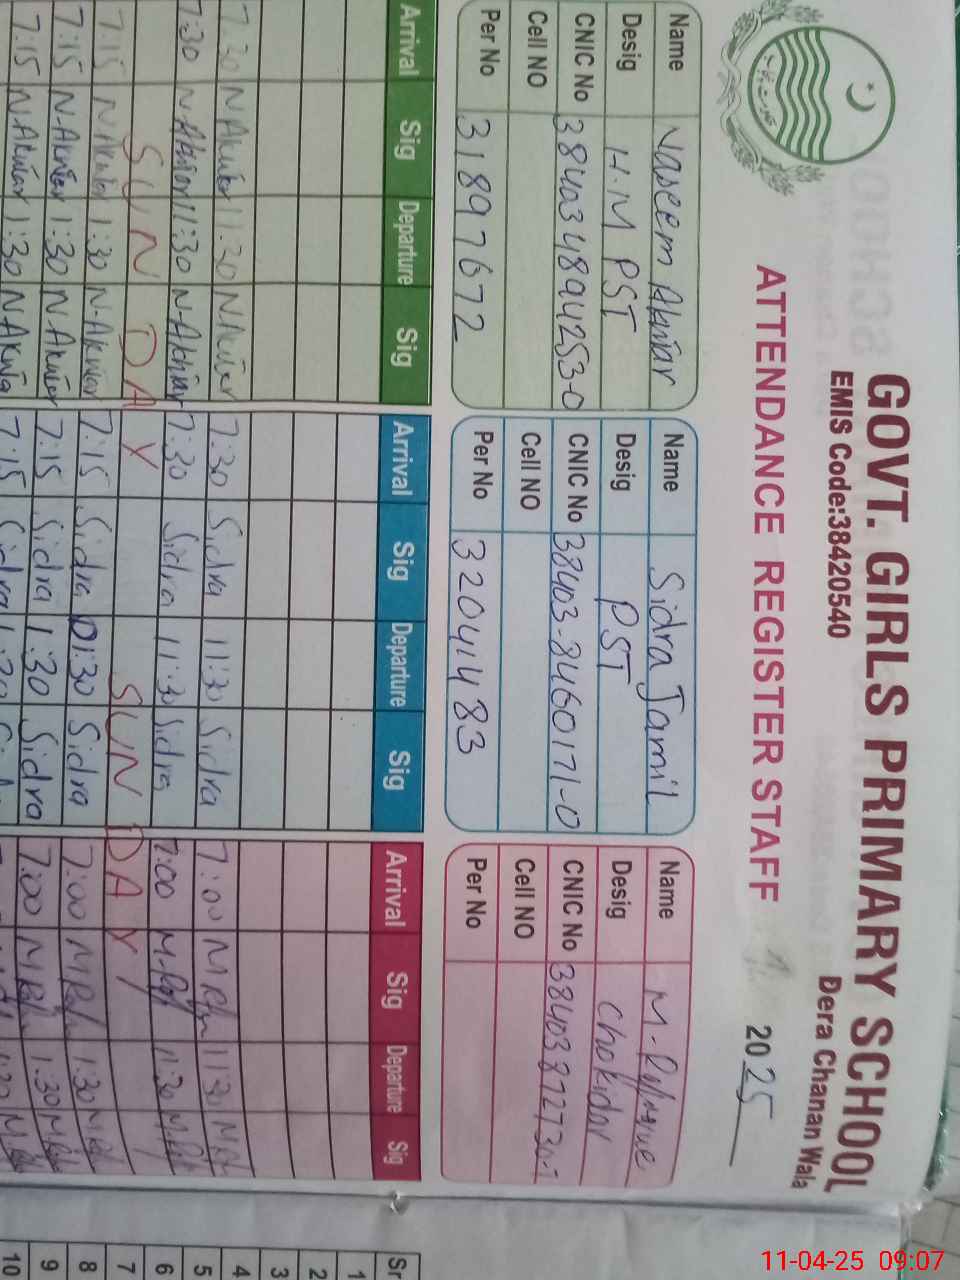 GOVT. GIRLS PRIMARY SCHOOL
EMIS Code:38420540 Dera Chanan Wala
ATTENDANCE REGISTER STAFF 2025
Name Naseem Akhtar
Desig H.M PST
CNIC No 3840348944253-0
Cell NO
Per No 31897672
Name Sidra Jamil
Desig PST
CNIC No 38403-8460171-0
Cell NO
Per No 32041483
Name
Desig Chokidar
CNIC No
Cell NO
Per No
Arrival Sig Departure Sig Arrival Sig Departure Sig Arrival Sig Departure Sig Sr
1
2
3
7:30 N Akhtar 11:30 N Akhtar 7:30 Sidra 11:30 Sidra 7:00 11:30 4
7:30 N-Akhtar 11:30 N-Akhtar 7:30 Sidra 11:30 Sidra 7:00 11:30 5
SUNDAY SUNDAY 6
7:15 N Akhtar 1:30 N-Akhtar 7:15 Sidra 01:30 Sidra 7:00 1:30 7
7:15 N-Akhtar 1:30 N Akhtar 7:15 Sidra 1:30 Sidra 7:00 1:30 8
7:15 N Akhtar 1:30 N Akhtar 7:15 9
10
11-04-25 09:07